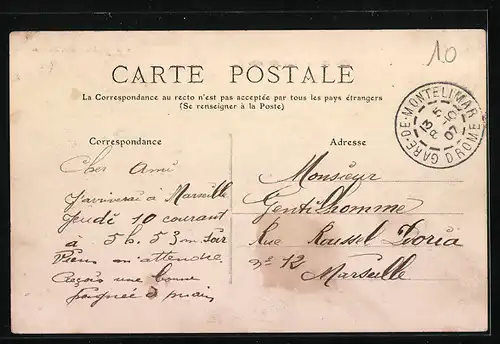 10
CARTE POSTALE
La Correspondance au recto n'est pas acceptée par tous les pays étrangers
(Se renseigner à la Poste)
GARE-DE-MONTELIMAR
DROME
Correspondance
Adresse
Cher Ami
J'arriverai à Marseille
Jeudi 10 courant
à 5h. 53 m Soir
Viens m'attendre.
Reçois une bonne
poignée d main
Monsieur
Gentilhomme
Rue Roussel Doria
no 12
Marseille